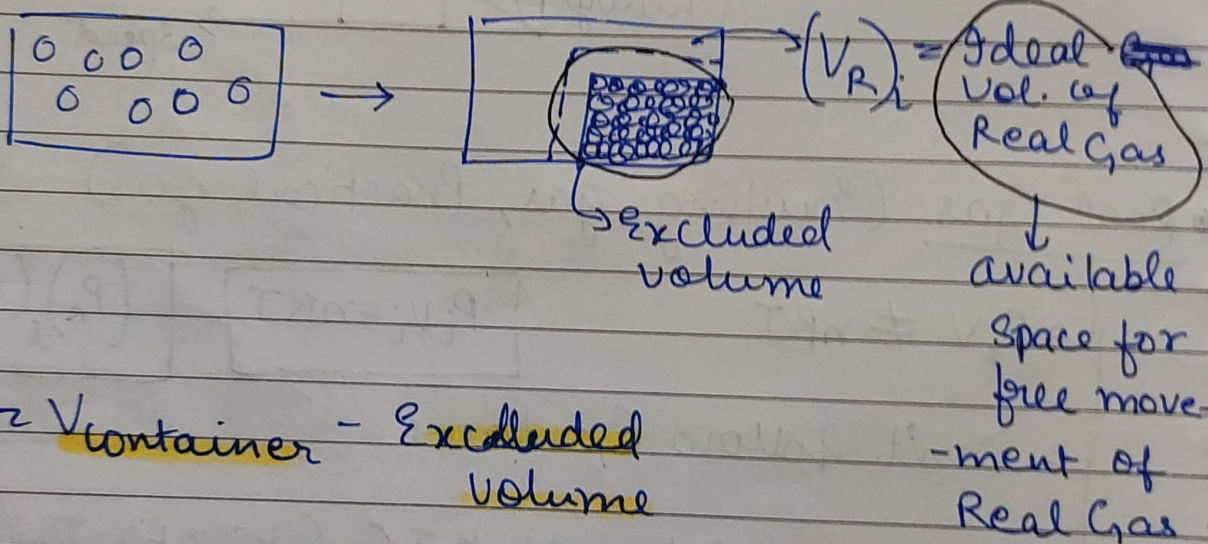 (V_R)_i = Ideal
Vol. of
Real Gas
Excluded
volume
available
Space for
free move-
-ment of
Real Gas
= Vcontainer - Excluded
volume